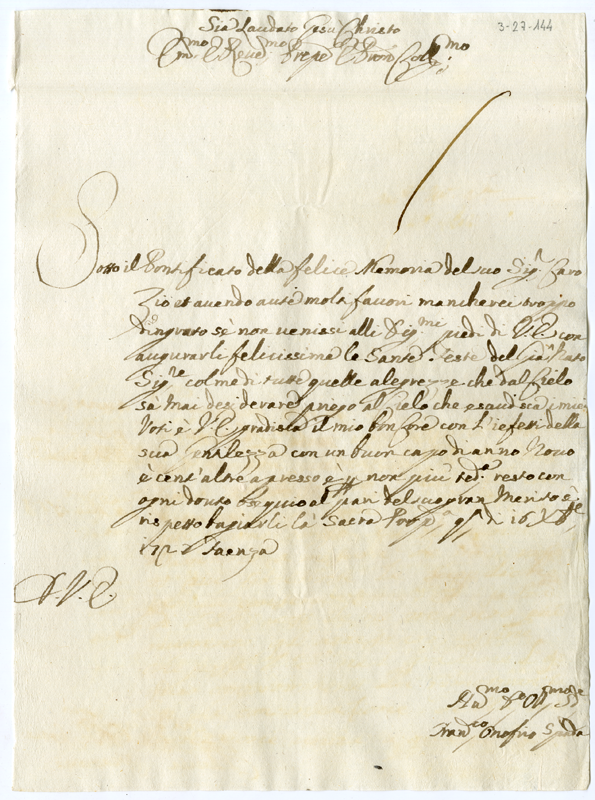 Sia Laudato Gesu Christo
3-27-144
Em.mo E Reve.mo Prnpe E Pron Col.mo
Sotto il Pontificato della felice Memoria del suo Sig.r Caro
Zio et avendo auti molti favori mancherei troppo
d'ingrato sè non venissi alli Sig.mi piedi di V.E. con
augurarli felicissime le Sante feste del Nato
Sig.re colme di tutte quelle alegrezze che dal Cielo
sà mai desiderare priego al Cielo che esaudisca i miei
Voti è V.E. gradisca il mio bon Core con l'efetti della
sua Gentilezza con un buon capo di anno Novo
è cent'altri apresso è non più resto con
ogni douto osequio al pari del suo gran Merito è
rispetto bagiarli la Sacra q.sto di 16 Xbre
Faenza
D. V. E.
Hu.mo Ob.mo
Fran.co Onofrio Spada